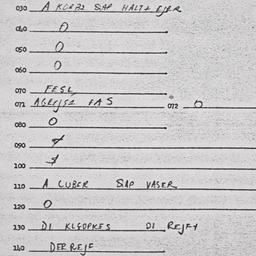 030 A KORBI SAP HALT
040 0
050 0
060 0
070 FESL
071 AGREJSI FAS 072 0
080 0
090 7
100 7
110 A CUBER SAP VASER
120 0
130 DI KLGOPKES DI REJFT
140 DERREJF